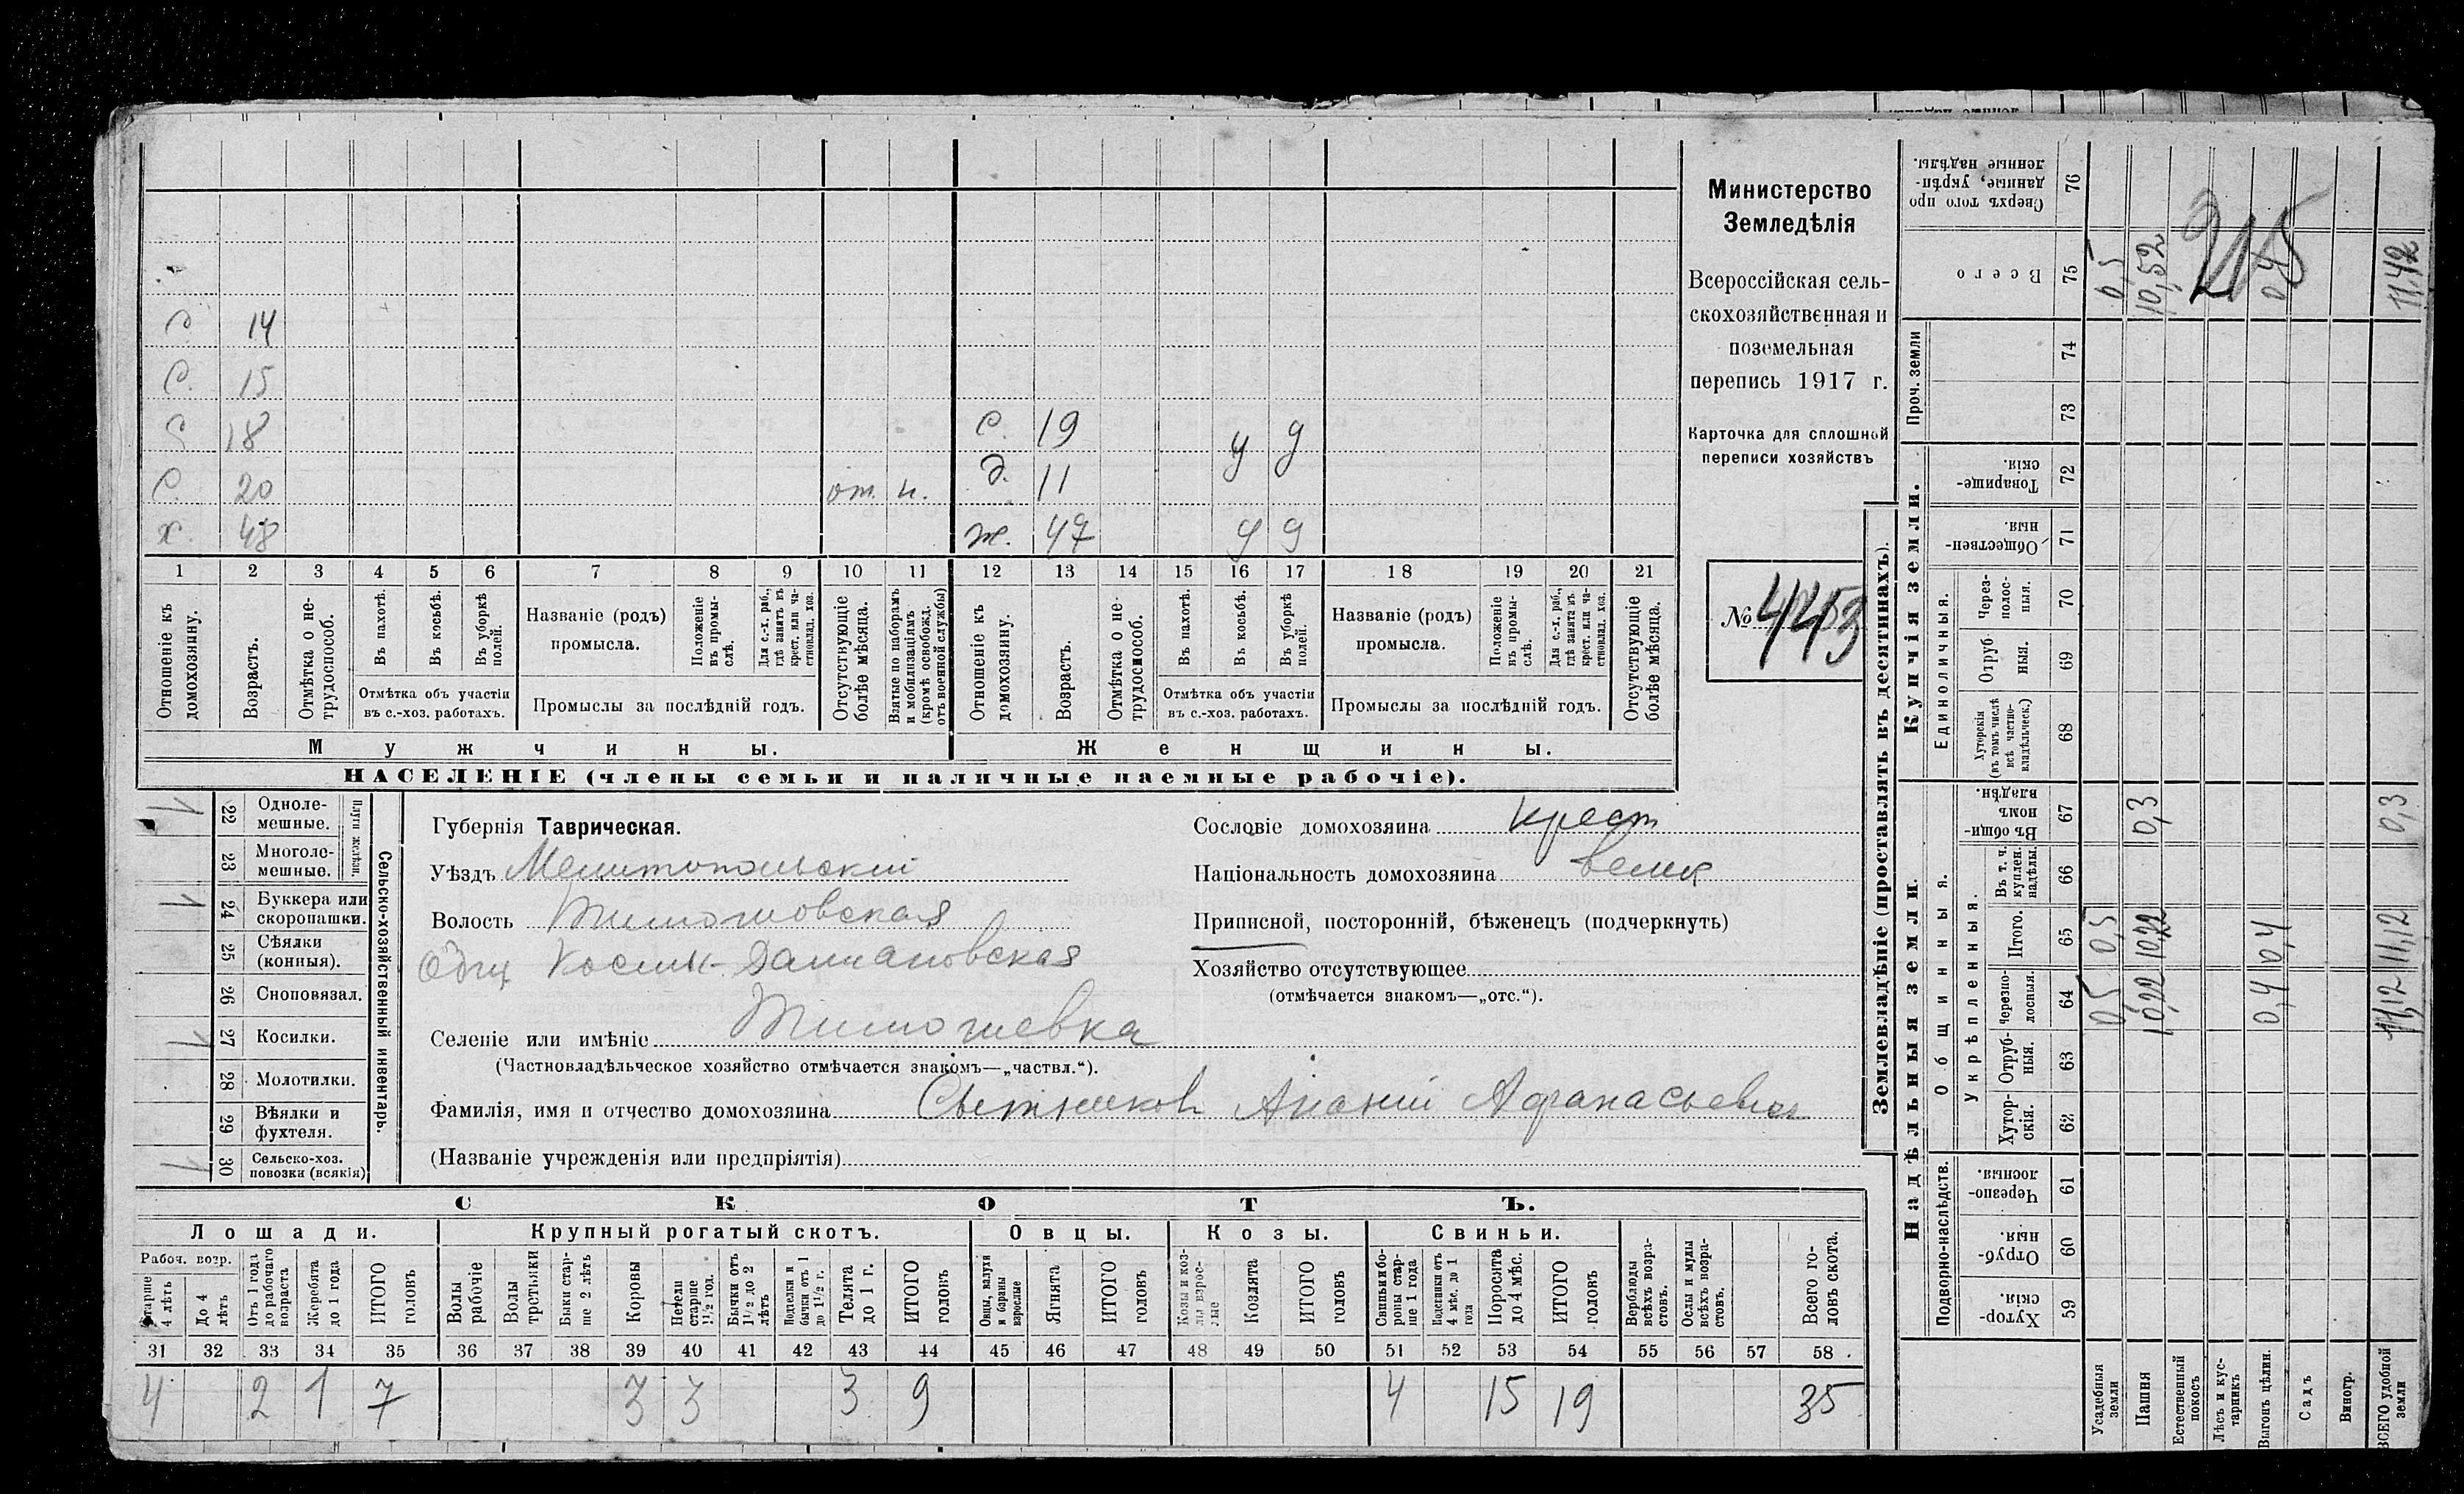 Министерство
Земледѣлія
Всероссійская сель-
скохозяйственная и
поземельная
перепись 1917 г.
Карточка для сплошной
переписи хозяйствъ
№ 4453
С 14
С. 15
С 18
С. 20 от. н.
х. 48
С. 19 у у
д. 11
ж. 47 у у
1 2 3 4 5 6 7 8 9 10 11 12 13 14 15 16 17 18 19 20 21
Отношеніе къ домохозяину.
Возрастъ.
Отмѣтка о не-трудоспособ.
Въ пахотѣ.
Въ косьбѣ.
Въ уборкѣ полей.
Отмѣтка объ участіи
въ с.-хоз. работахъ.
Названіе (родъ)
промысла.
Положеніе въ промы-слѣ.
Для с.-х. раб., гдѣ занятъ въ крест. или ча-стновлад. хоз.
Промыслы за послѣдній годъ.
Отсутствующіе болѣе мѣсяца.
Взятые по наборамъ и мобилизаціямъ (кромѣ освобожд. отъ военной службы)
Отношеніе къ домохозяину.
Возрастъ.
Отмѣтка о не-трудоспособ.
Въ пахотѣ.
Въ косьбѣ.
Въ уборкѣ полей.
Отмѣтка объ участіи
въ с.-хоз. работахъ.
Названіе (родъ)
промысла.
Положеніе въ промы-слѣ.
Для с.-х. раб., гдѣ занята въ крест. или ча-стновлад. хоз.
Промыслы за послѣдній годъ.
Отсутствующіе болѣе мѣсяца.
Мужчины.
Женщины.
НАСЕЛЕНІЕ (члены семьи и наличные наемные рабочіе).
Сельско-хозяйственный инвентарь.
Плуги желѣзн.
22 Одноле-мешные.
23 Многоле-мешные.
24 Буккера или скоропашки.
25 Сѣялки (конныя).
26 Сноповязал.
27 Косилки.
28 Молотилки.
29 Вѣялки и фухтеля.
30 Сельско-хоз. повозки (всякія)
Губернія Таврическая.
Уѣздъ Мелитопольскій
Волость Тимошовская
Общ Косьмы-Даміановская
Селеніе или имѣніе Тимошевка
(Частновладѣльческое хозяйство отмѣчается знакомъ—„частвл.“).
Фамилія, имя и отчество домохозяина Сытников Ананій Афанасьевич
(Названіе учрежденія или предпріятія)
Сословіе домохозяина крест
Національность домохозяина велик
Приписной, посторонній, бѣженецъ (подчеркнуть)
Хозяйство отсутствующее
(отмѣчается знакомъ—„отс.“).
СКОТЪ.
Лошади. Крупный рогатый скотъ. Овцы. Козы. Свиньи.
Рабоч. возр.
Старше 4 лѣтъ
До 4 лѣтъ
Отъ 1 года до рабочаго возраста
Жеребята до 1 года
ИТОГО головъ
Волы рабочіе
Волы третьяки
Быки стар-ше 2 лѣтъ
Коровы
Нетели старше 1½ год.
Бычки отъ 1½ до 2 лѣтъ
Подтелки и бычки отъ 1 до 1½ г.
Телята до 1 г.
ИТОГО головъ
Овцы, валухи и бараны взрослые
Ягнята
ИТОГО головъ
Козы и коз-лы взрос-лые
Козлята
ИТОГО головъ
Свиньи и бо-ровы стар-ше 1 года
Подсвинки отъ 4 мѣс. до 1 года
Поросята до 4 мѣс.
ИТОГО головъ
Верблюды всѣхъ возра-стовъ.
Ослы и мулы всѣхъ возра-стовъ.
Всего го-ловъ скота.
31 32 33 34 35 36 37 38 39 40 41 42 43 44 45 46 47 48 49 50 51 52 53 54 55 56 57 58
4 2 1 7 3 3 3 9 4 15 19 35
Землевладѣніе (проставлять въ десятинахъ).
Надѣльныя земли.
Купчія земли.
Проч. земли
Подворно-наслѣдств.
Общинныя.
Укрѣпленныя.
Единоличныя.
Сверхъ того про-данные, укрѣп-ленные надѣлы. 76
Всего 75
74
73
Товарище-скія. 72
Обществен-ныя. 71
Черезполос-ныя. 70
Отруб ныя. 69
Хуторскія (въ томъ числѣ всѣ частно-владѣльческ.) 68
Въ общи-номъ владѣн. 67
Въ т. ч. куплен. надѣлы. 66
Итого. 65
Черезпо-лосныя. 64
Отруб-ныя. 63
Хутор-скія. 62
Черезпо-лосныя. 61
Отруб-ныя. 60
Хутор-скія. 59
Усадебныя земли 0,5 0,5 0,5
Пашня 10,22 10,22 0,3 10,52
Естественный покосъ
Лѣсъ и кус-тарникъ
Выгонъ цѣлин. 0,4 0,4 0,4
Садъ
Виногр.
ВСЕГО удобной земли 11,12 11,12 0,3 11,42
215